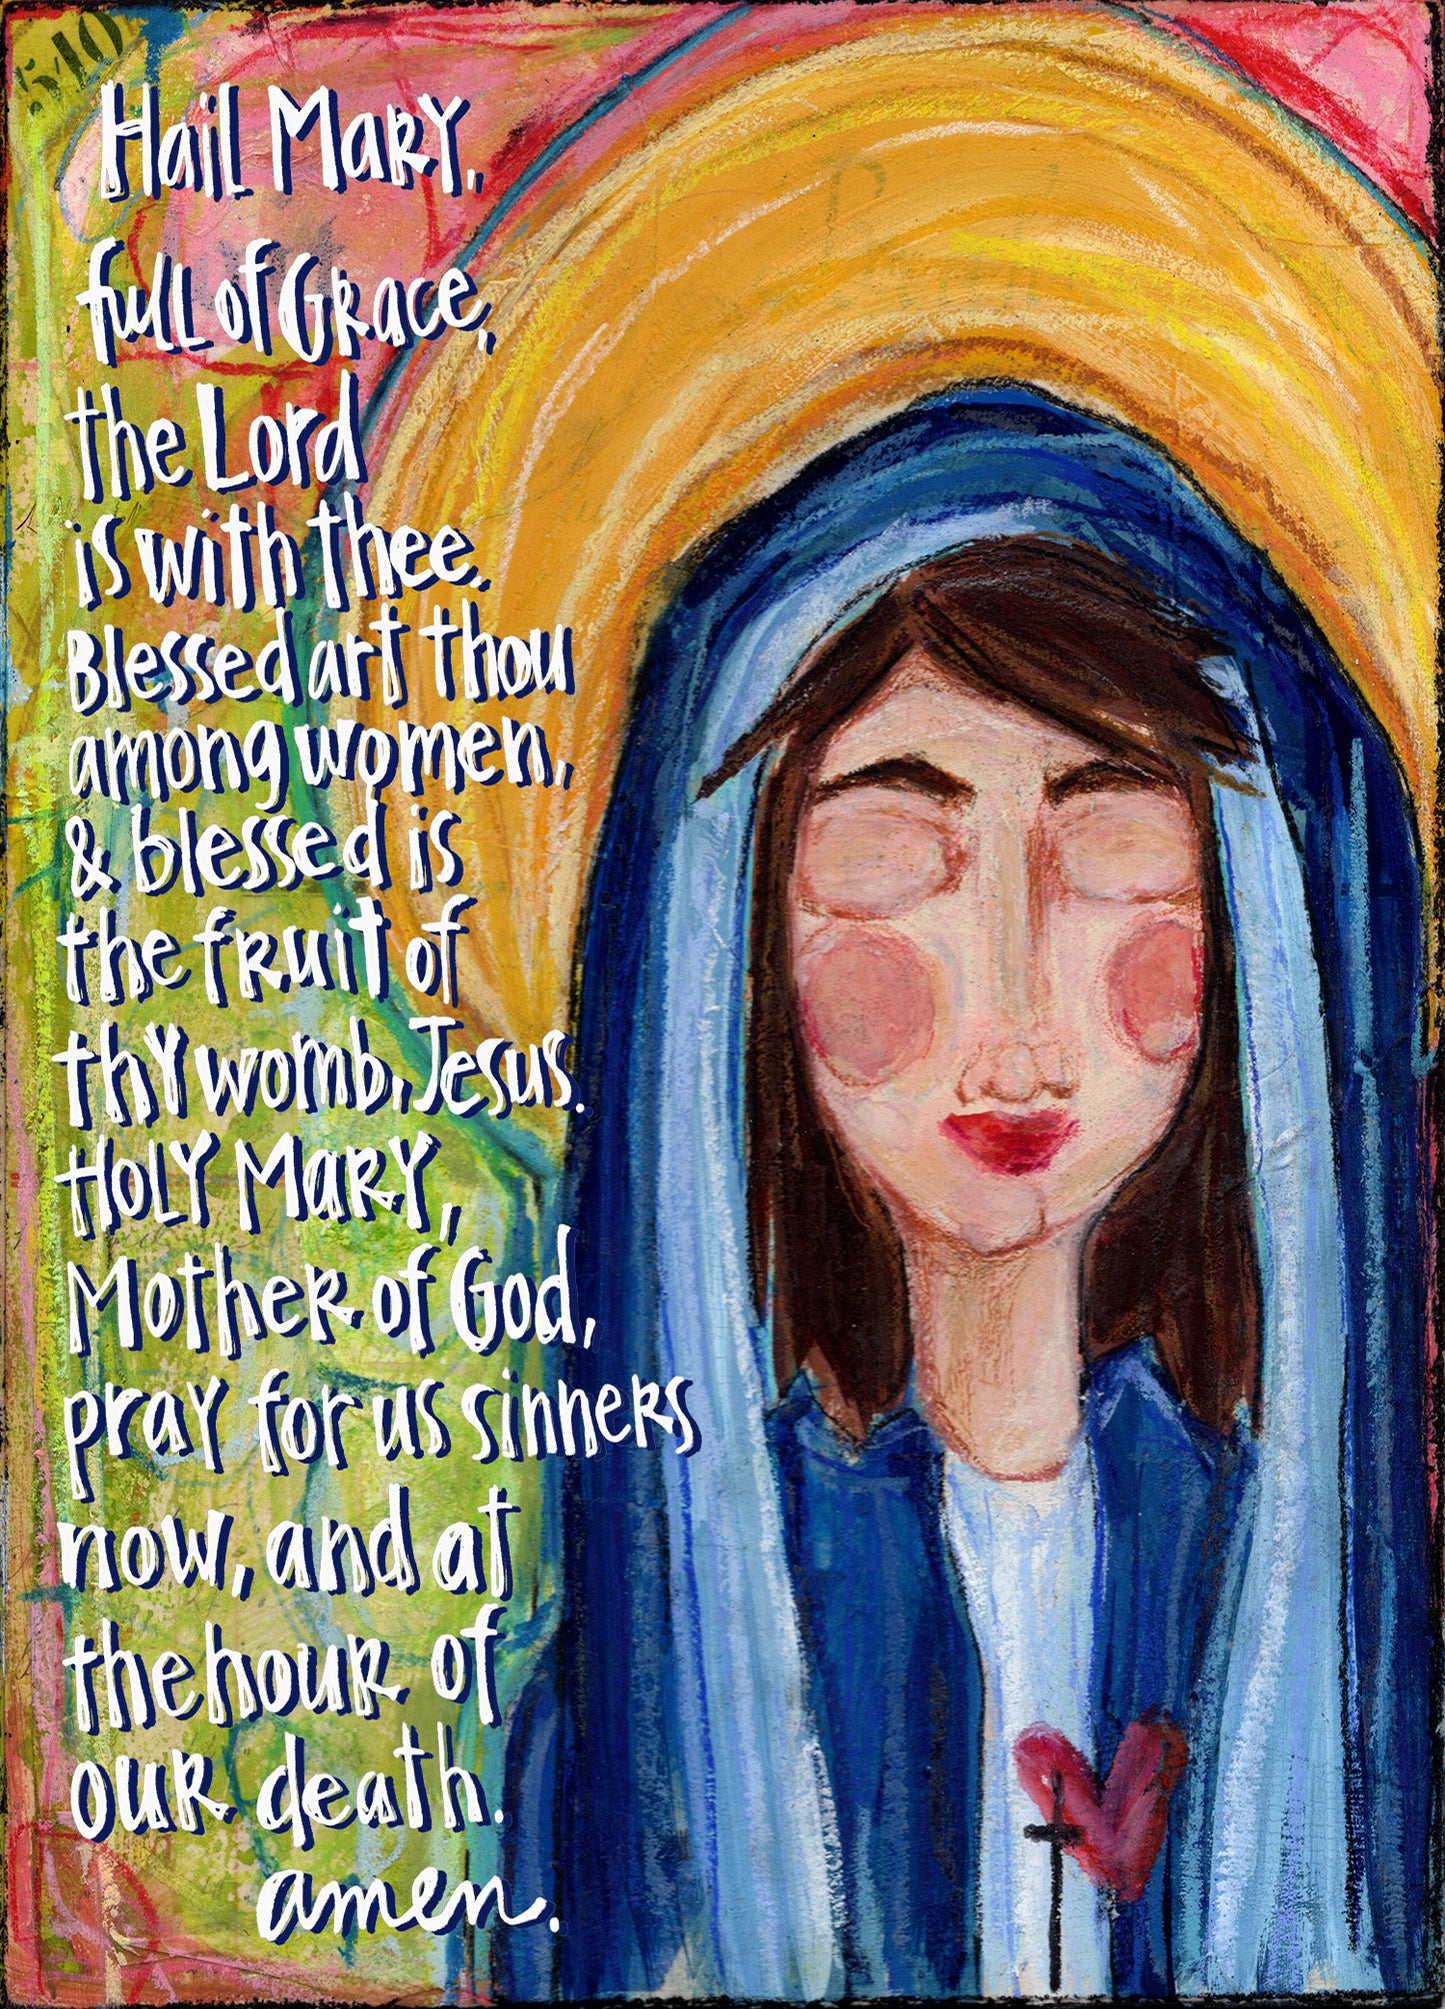 540
Hail Mary,
full of Grace,
the Lord
is with thee.
Blessed art thou
among women,
& blessed is
the fruit of
thy womb, Jesus.
Holy Mary,
Mother of God,
pray for us sinners
now, and at
the hour of
our death.
amen.